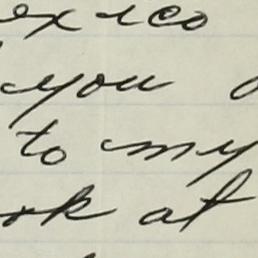 exico
you
to my
ok at